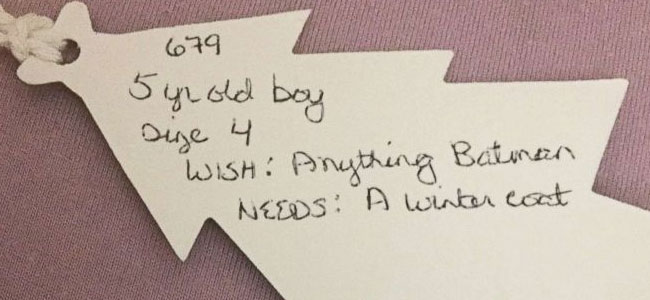 679
5 yr old boy
Size 4
WISH: Anything Batman
NEEDS: A winter coat